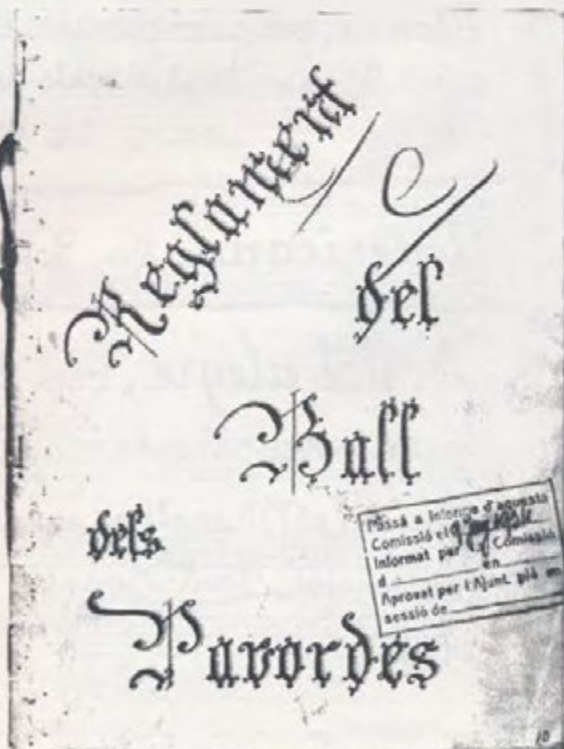 Reglament
del
Ball
dels
Pavordes
Passà a informe d'aquesta
Comissió el
Informat per Comissió
d en
Aprovat per l'Ajunt. plé en
sessió de
10